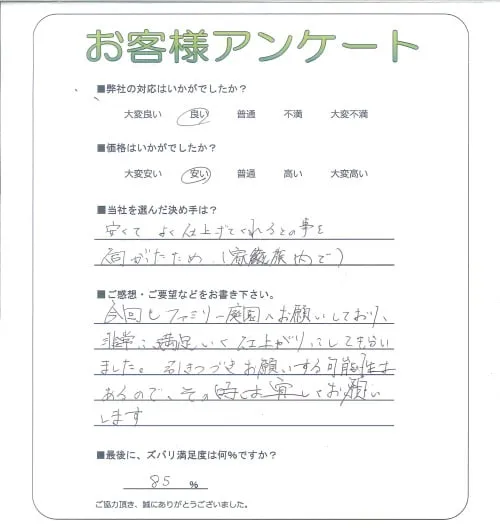 お客様アンケート
■弊社の対応はいかがでしたか?
大変良い 良い 普通 不満 大変不満
■価格はいかがでしたか?
大変安い 安い 普通 高い 大変高い
■当社を選んだ決め手は?
安くて よく仕上げてくれるとの事を
伺がたため。(家族内で)
■ご感想・ご要望などをお書き下さい。
今回もファミリー庭園へお願いしており、
非常に満足いく仕上がりにしてもらい
ました。引きつづきお願いする可能性は
あるので、その時は宜しくお願い
します
■最後に、ズバリ満足度は何%ですか?
85 %
ご協力頂き、誠にありがとうございました。